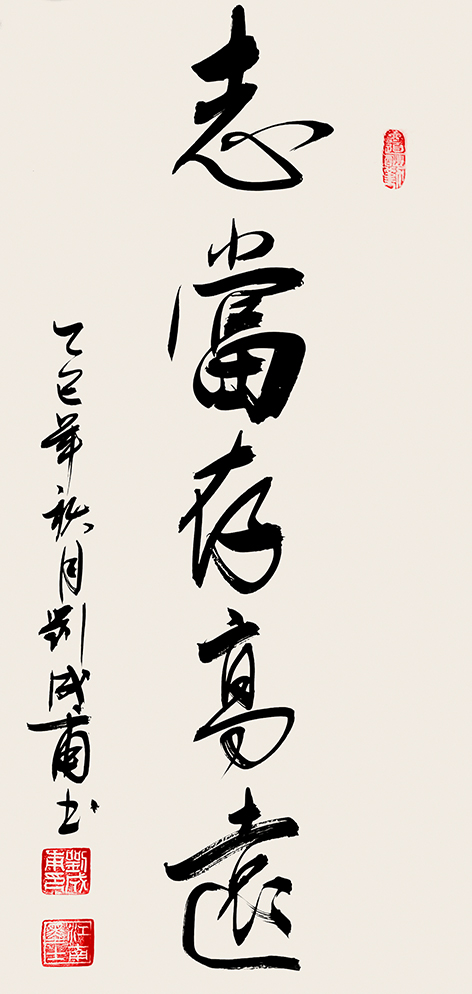 志當存高遠
乙巳年秋月劉成甫书
劉成甫印
江南